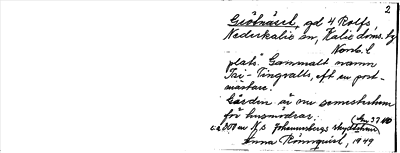 2
Grötnäsel, gd 4 Rolfs,
Nederkalix sn, Kalix doms. by
Norrb. l
plats. Gammalt namn
Tai - Tingvalls, eft en post-
mästare.
Gården är nu semesterhem
för husmödrar.
c:a 000 m N/s Johannesbergs skyddshem
Anna Rönnqvist, 1949